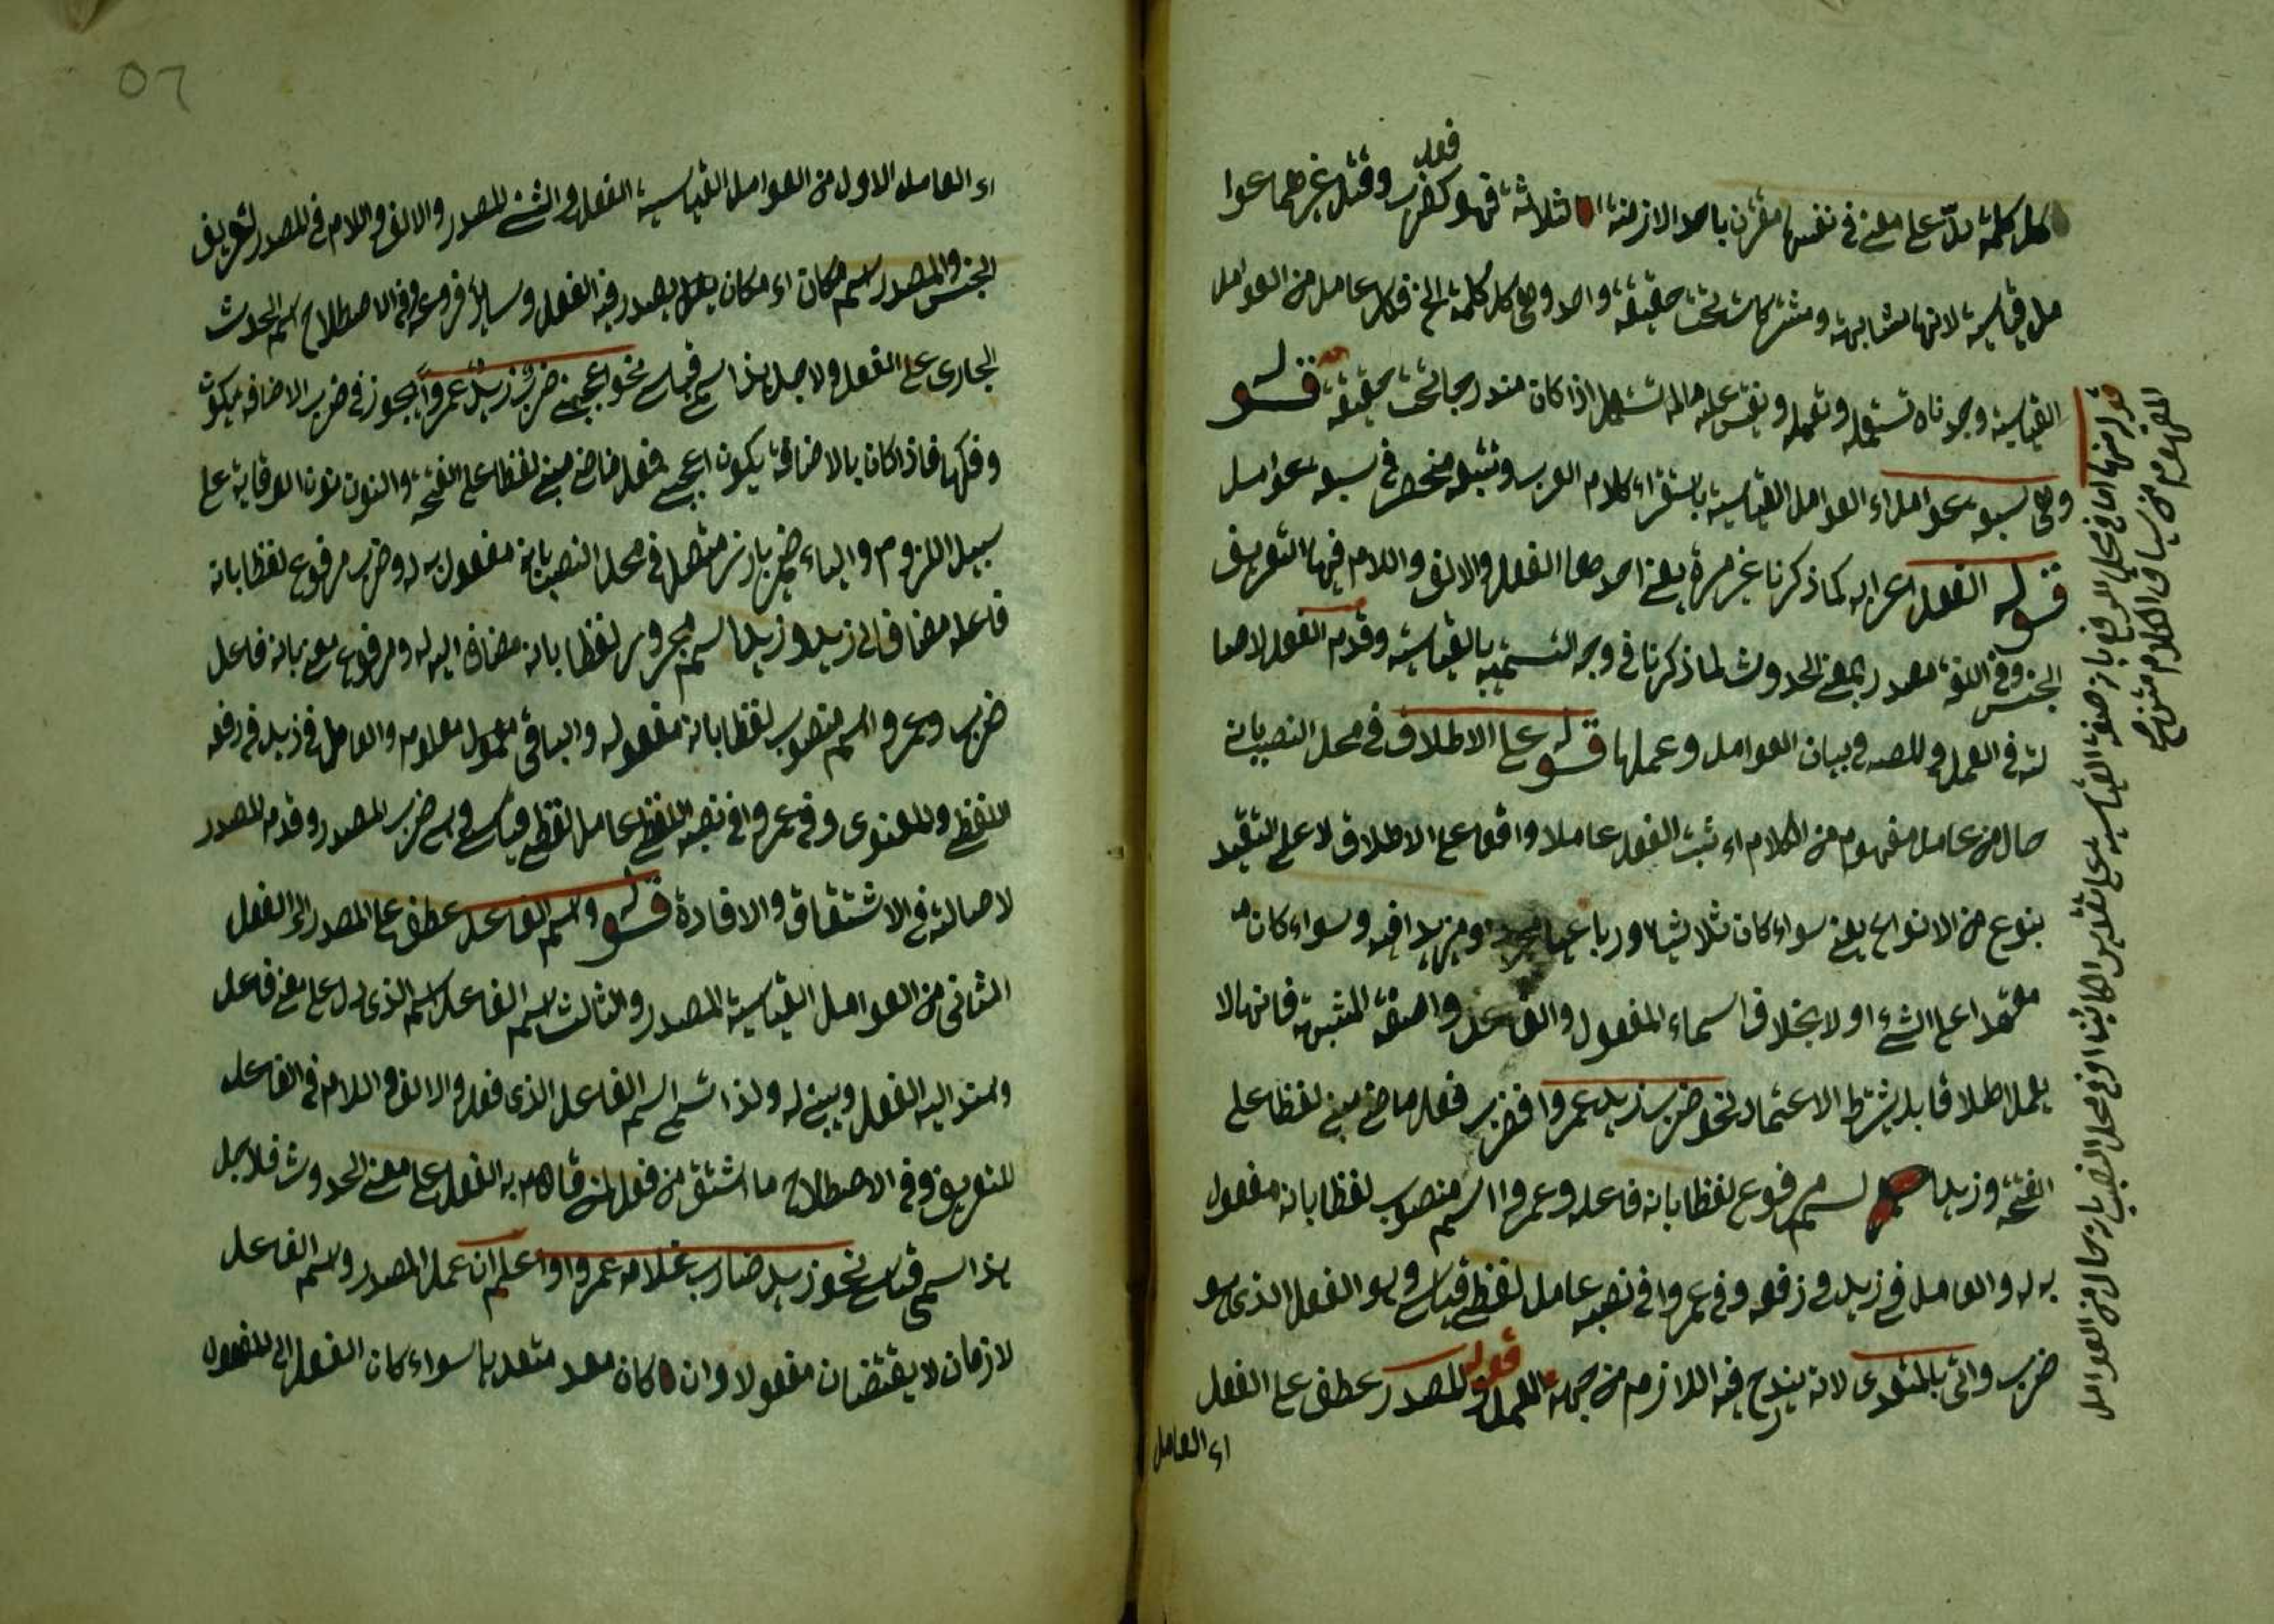 كل كلمة تدل على معنى في نفسها مقترن باحد الازمنة الثلاثة فهو فعل كضرب وقتل غيرهما عوا
مل قياسية لانها متشابهة ومشتركات تحت حقيقة واحد وهى كل كلمة الخ فكل عامل من العوامل
القياسية وجدناه تستعمله وتعمله وتقيس عليه مالم تستعمل اذا كان مندرجا تحت حقيقة قوله
وهى سبعة عوامل اى العوامل القياسية باستقراء كلام العرب وتتبعه منحصر في سبعة عوامل
قوله الفعل اعرابه كما ذكرنا غير مرة يعنى احدها الفعل والالف واللام فيها التعريف
الجنس وفي اللغة مصدر بمعنى الحدوث لما ذكرنا في وجه التسمية بالقياسية وقدم الفعل لاصا
لته في العمل والمص في بيان العوامل وعملها قوله على الاطلاق في محل النصب بانه
حال من عامل مفهوم من الكلام اى ثبت الفعل عاملا واقعا على الاطلاق لا على التقييد
بنوع من الانواع يعنى سواء كان ثلاثيا ورباعيا او مزيدا فيه وسواء كان
معتمدا على الشئ او لا بخلاف اسماء المفعول والفاعل واصفة المشبهة فانها لا
يعمل اطلاقا بل بشرط الاعتماد نحو ضرب زيد عمروا فضرب فعل ماض مبنى لفظا على
الفتحة وزيد اسم مرفوع لفظا بانه فاعله وعمروا اسم منصوب لفظا بانه مفعول
به له والعامل في زيد في رفعه وفي عمروا في نصبه عامل لفظى قياسى وهو الفعل الذى هو
ضرب واتى بالمتعدى لانه يندرج فيه اللازم من جهة العمل قوله والمصدر عطف على الفعل
اى العامل
قوله منها اما في محل الرفع بانه صفة القياسية على تقدير الكائنا او في محل النصب بانه حال من العوامل
المفهوم من سياق الكلام
٥٦
اى العامل الاول من العوامل القياسية الفعل والثنى المصدر والالف واللام في المصدر لتعريف
الجنس والمصدر اسم مكان اى مكان يصدر فيه الفعل وسائر فروعه وفي الاصطلاح اسم الحدث
الجارى على الفعل ولاجل هذا اسم قياسى نحو اعجبنى ضرب زيد عمروا يجوز في ضرب الاضافه يكون
وفكها فاذا كان بالاضافة يكون اعجب فعل ماض مبنى لفظا على الفتحة والنون نون الوقاية على
سبيل اللزوم والياء ضمير بارز متصل في محل النصب بانه مفعول به له وضرب مرفوع لفظا بانه
فاعله مضاف الى زيد وزيد اسم مجرور لفظا بانه مضاف اليه له ومرفوع معنى بانه فاعل
ضرب وعمروا اسم منصوب لفظا بانه مفعوله والباقي معمول معلوم والعامل في زيد في رفعه
اللفظى والمعنوى وفي عمروا في نصبه اللفظى عامل لفظى قياسى وهى ضرب المصدر وقدم المصدر
لاصالته في الاشتقاق والافادة قوله واسم الفاعل عطف على المصدر اى الفعل
الثانى من العوامل القياسية المصدر والثالث اسم الفاعل اسم الذى دل على معنى فاعل
ويستند اليه الفعل ويبنى له ولذا سمى اسم الفاعل الذى فعل والالف واللام في الفاعل
للتعريف وفي الاصطلاح ما اشتق من فعل لمن قام به الفعل على معنى الحدوث فلاجل
هذا اسمى قياسى نحو زيد ضارب غلامه عمروا واعلم ان عمل المصدر واسم الفاعل
لازمان لا يقتضيان مفعولا وان كان متعديا سواء كان الفعل الى المفعول